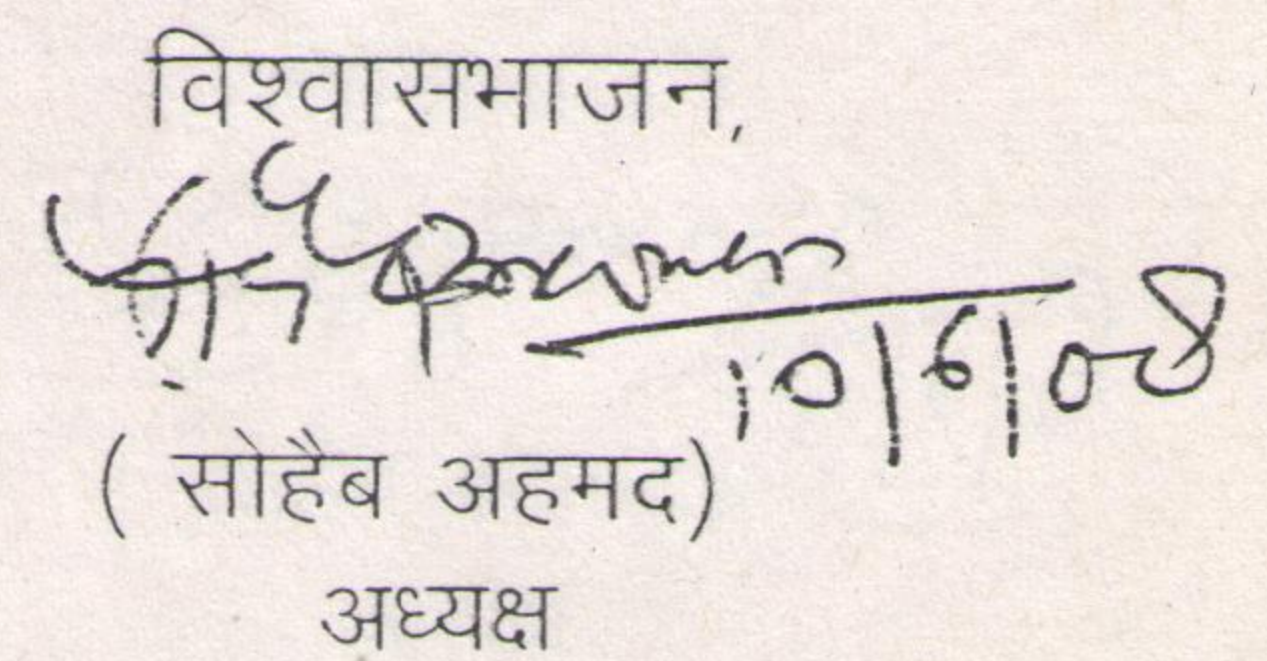 विश्वासभाजन,
10/6/08
( सोहैब अहमद)
अध्यक्ष